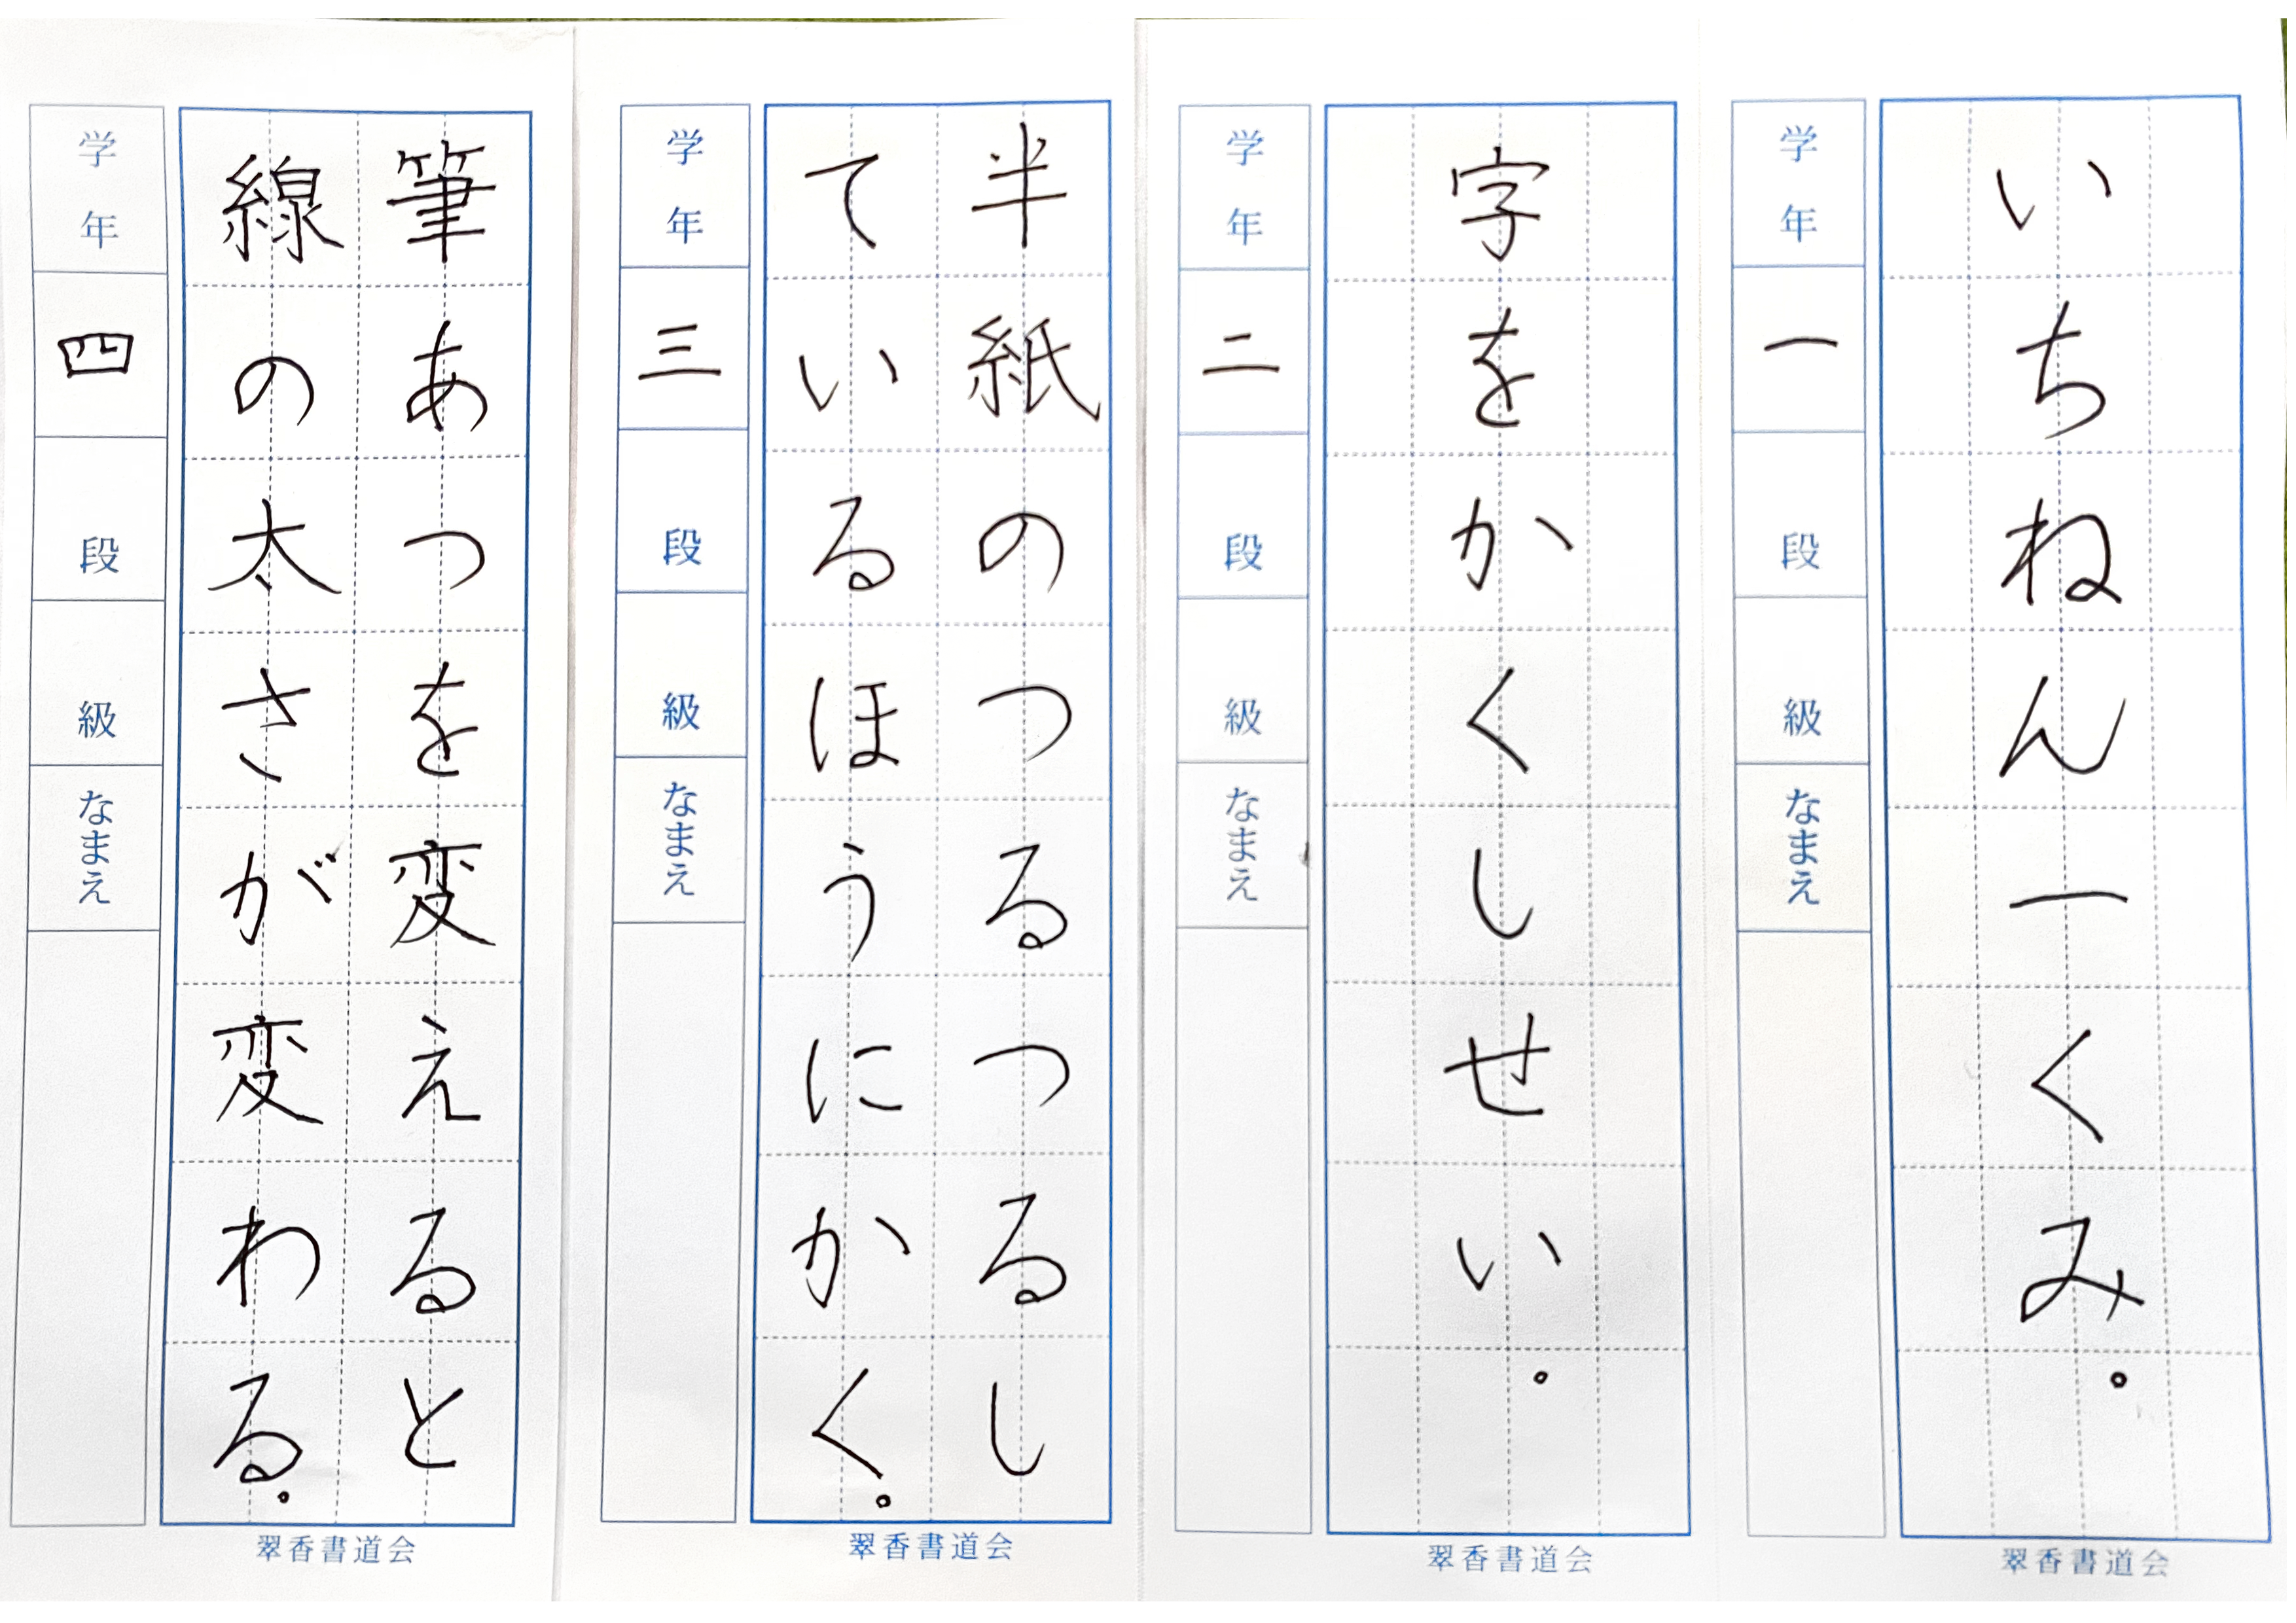 いちねん一くみ。
学年
一
段
級
なまえ
翠香書道会
字をかくしせい。
学年
二
段
級
なまえ
翠香書道会
半紙のつるつるし
ているほうにかく。
学年
三
段
級
なまえ
翠香書道会
筆あつを変えると
線の太さが変わる。
学年
四
段
級
なまえ
翠香書道会